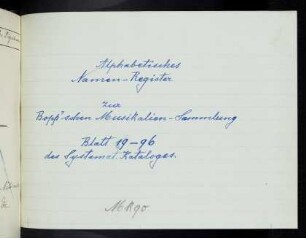 Alphabetisches
Namen-Register
zur
Bopp'schen Musikalien-Sammlung
Blatt 19-96
des Systemat. Kataloges.